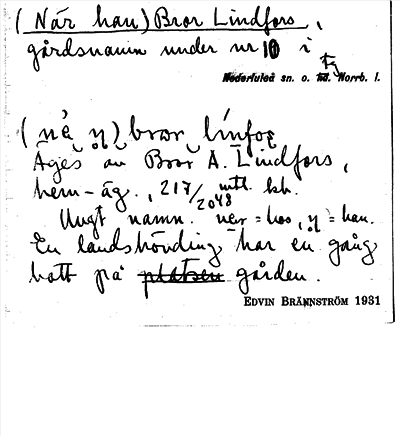 (När han) Bror Lindfors,
gårdsnamn under nr 10 i
Nederluleå sn. o. td. Fg Norrb. l.
bror
Äges av Bror A. Lindfors,
hem-äg., 217/2048 mtl. kh.
Ungt namn. = hos, = han.
En landshövding har en gång
bott på platsen gården.
EDVIN BRÄNNSTRÖM 1931